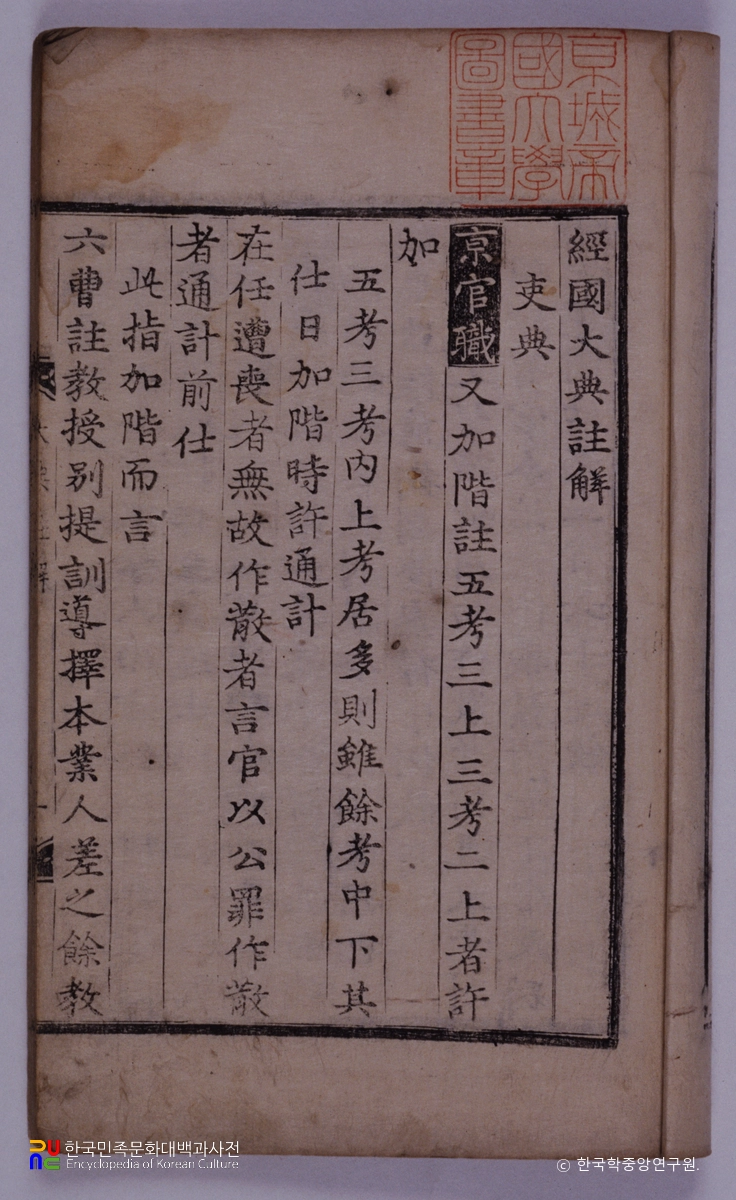 京城帝
國大學
圖書章
經國大典註解
吏典
京官職又加階註五考三上三考二上者許
加
五考三考內上考居多則雖餘考中下其
仕日加階時許通計
在任遭喪者無故作散者言官以公罪作散
者通計前仕
此指加階而言
六曹註教授別提訓導擇本業人差之餘教
한국민족문화대백과사전
Encyclopedia of Korean Culture
© 한국학중앙연구원.